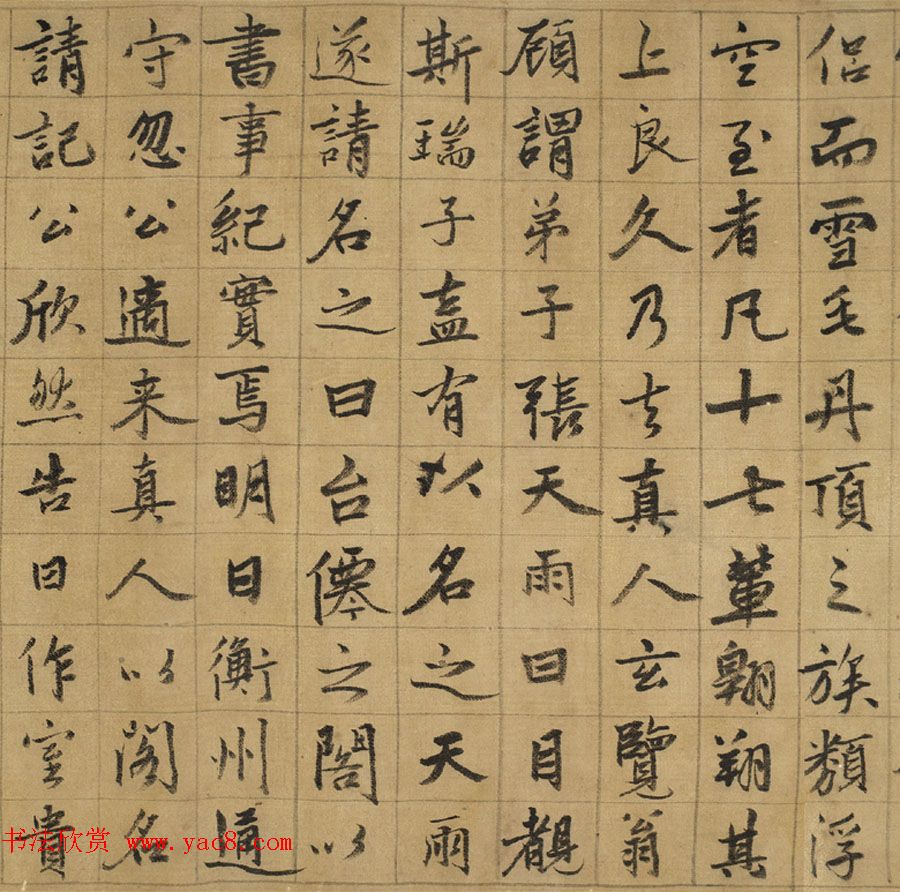 侶而雪毛丹頂之族類浮
空至者凡十七輩翱翔其
上良久乃去真人玄覽翁
顧謂弟子張天雨曰目覩
斯瑞子盍有以名之天雨
遂請名之曰台僊之閣以
書事紀實焉明日衡州通
守忽公適来真人以閣名
請記公欣然告曰作室貴
书法欣赏 www.yac8.com